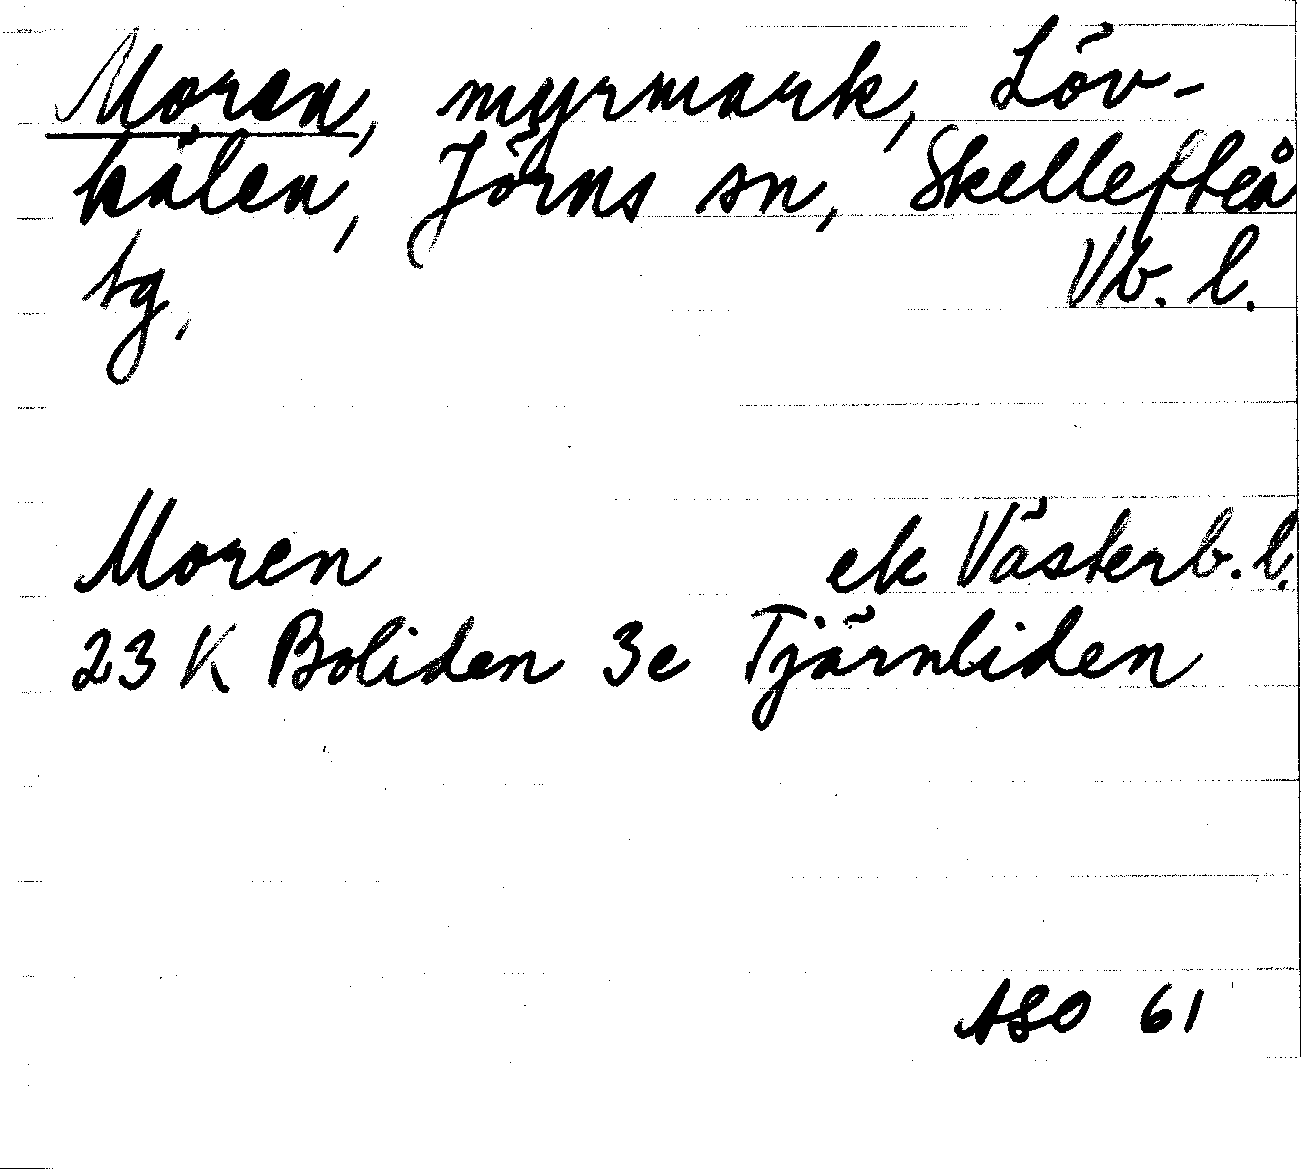 Moren, myrmark, Löv-
kålen, Jörns sn, Skellefteå
tg, Vb. l.
Moren ek Västerb. l.
23 K Boliden 3e Tjärnliden
ASO 61